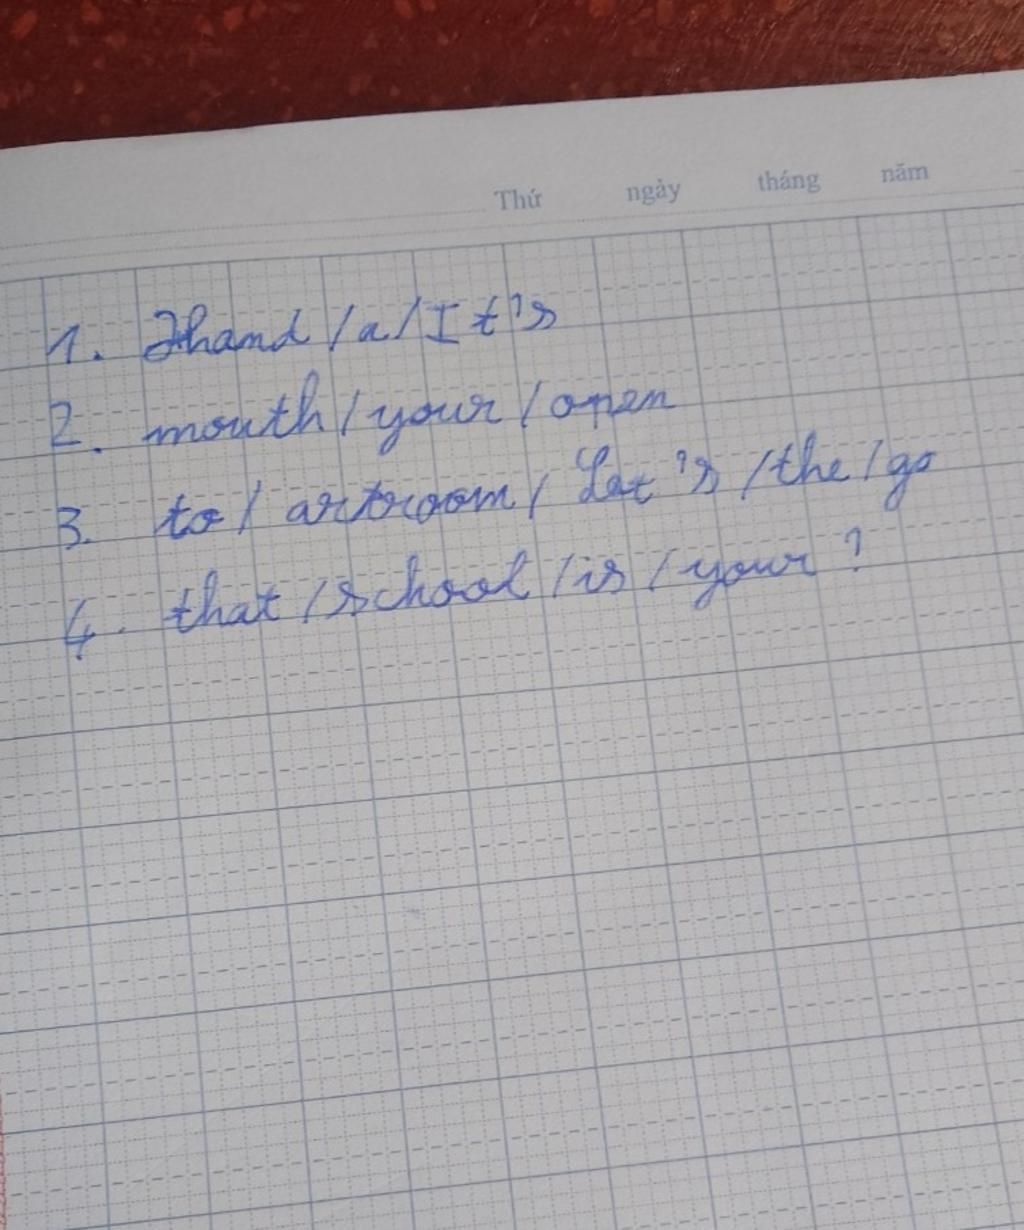 Thứ ngày tháng năm
1. hand / a / It's
2. mouth / your / open
3. to / artroom / Let's / the / go
4. that / school / is / your ?